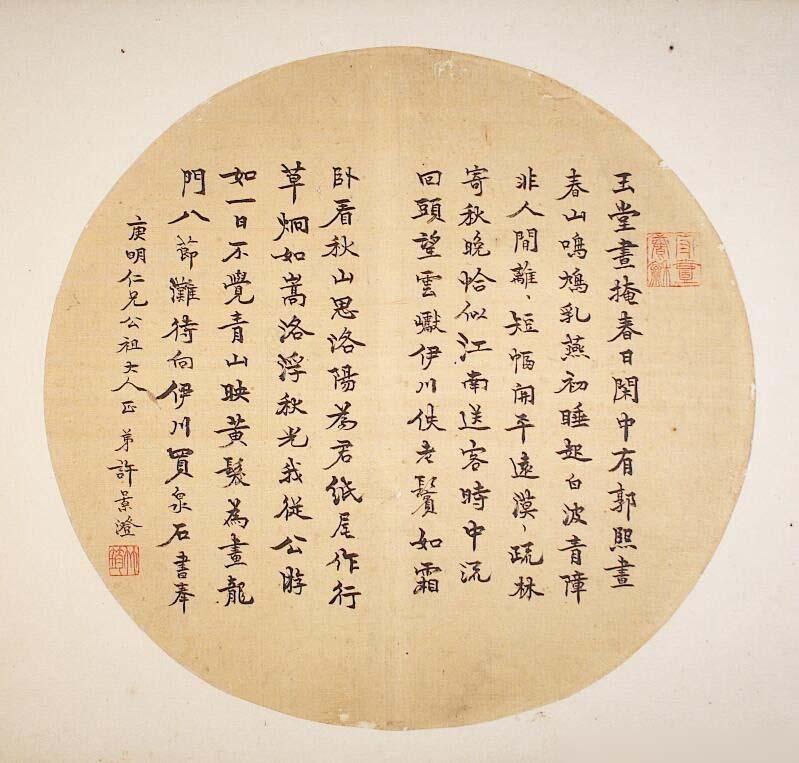 玉堂晝掩春日閑中有郭熙畫
春山鳴鳩乳燕初睡起白波青障
非人間離〻短幅開平遠漠〻疏林
寄秋晚恰似江南送客時中流
回頭望雲巘伊川佚老鬢如霜
卧看秋山思洛陽為君紙尾作行
草炯如嵩洛浮秋光我從公游
如一日不覺青山映黃髮為畫龍
門八節灘待向伊川買泉石書奉
庚明仁兄公祖大人正 弟許景澄